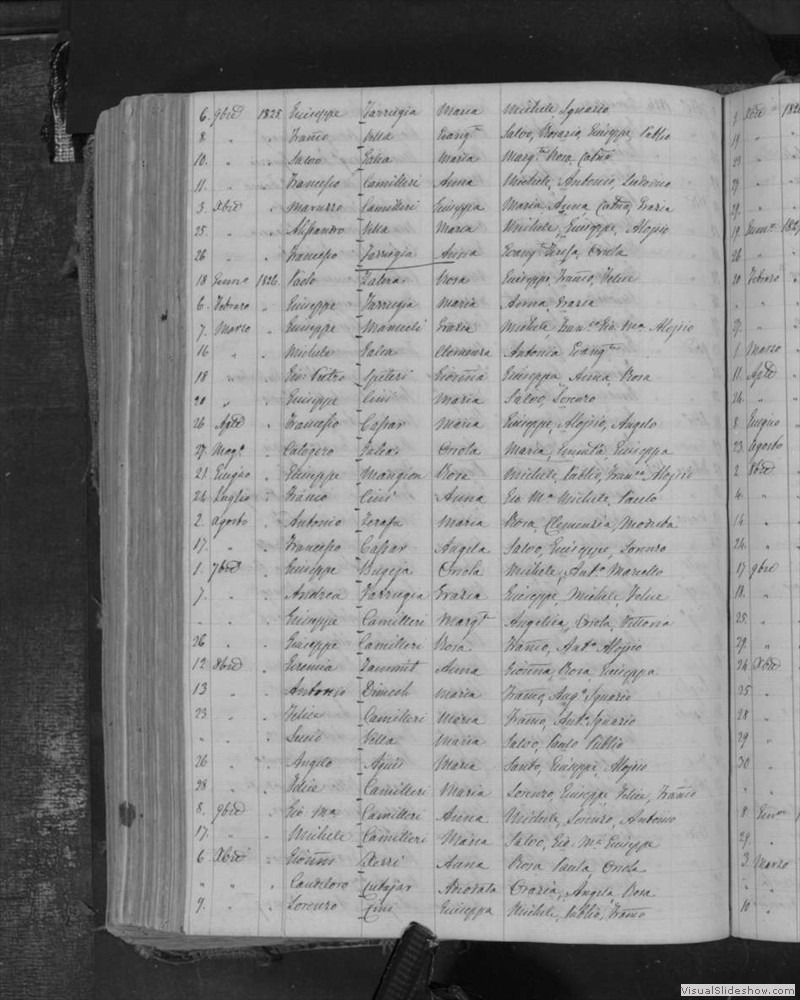 6. 9bre 1825 Giuseppe Farrugia Maria Michele Ignazio
8 " . Franco Vella Evangta Salvo, Rosaria, Giuseppe, Publio
10. " . Salvo Galea Maria Margta Rosa, Catna
11. " . Francesco Camilleri Anna Michele, Antonio, Ludovico
3. Xbre . Camilleri Giuseppa Maria, Anna, Catna, Grazia
25. " . Alessandro Vella Maria Michele, Giuseppe, Aloysio
26 " . Francesco Farrugia Anna Evangta Teresa, Orsola
18 Genno 1826. Paolo Rosa Giuseppe, Franco, Felice
6. Febraro . Giuseppe Farrugia Maria Anna, Grazia
7. Marzo . Giuseppe Grazia Michele, Gio. Ma. Aloysio
16 " . Michele Galea Clemenza Antonia Evangta
18 " . Gio: Pietro Spiteri Gioanna Giuseppa, Anna, Rosa
20 " . Giuseppe Cini Maria Salvo, Lorenzo
26 Aple . Francesco Caspar Maria Giuseppe, Aloysio, Angelo
27. Mago . Calogero Galea Orsola Maria, Giuseppa
21. Giugno . Giuseppe Mangion Rosa Michele, Publio, Aloysio
24 Luglio . Franco Cini Anna Gio. Ma. Michele, Paolo
2. Agosto . Antonio Zerafa Maria Rosa, Clemenzia, Modesta
17. " . Francesco Caspar Angela Salvo, Giuseppe, Lorenzo
1. 7bre . Giuseppe Bugeja Orsola Michele, Anto. Marcello
7. " . Andrea Farrugia Grazia Giuseppe, Michele, Felice
" . Giuseppe Camilleri Margta Angelica, Orsola, Vittoria
26 " . Giuseppe Camilleri Rosa Franco, Anto. Aloysio
12 Xbre . Geremia Zammit Anna Gioanna, Rosa, Giuseppa
13 " . Antonio Dimech Maria Franco, Augo. Ignazio
23. " . Felice Camilleri Maria Franco, Anto. Ignazio
" . Lucio Vella Maria Salvo, Paolo Publio
26 " . Angelo Agius Maria Santo, Giuseppe, Aloysio
28 " . Felice Camilleri Maria Lorenzo, Giuseppe, Felice, Franco
8. 9bre . Gio Ma Camilleri Anna Michele, Lorenzo, Antonio
17. " . Michele Camilleri Maria Salvo, Gio. Ma. Giuseppe
6. Xbre . Gioanni Xerri Anna Rosa Paola, Orsola
" . Candeloro Cutajar Adorata Grazia, Angela, Rosa
9. . Lorenzo Cini Giuseppa Michele, Publio, Franco
Xbre 182
19 "
23 "
29. "
29. "
19. Genno 182
26 "
20 Febraro
1. Marzo
11. Aple
26. "
8. Giugno
23. Agosto
2. Xbre
4. "
14 "
24. "
17 9bre
18. "
25. "
29. "
24 Xbre
25 "
28 "
29 "
30 "
8 Genno
29. "
3. Marzo
10 "
VisualSlideshow.com